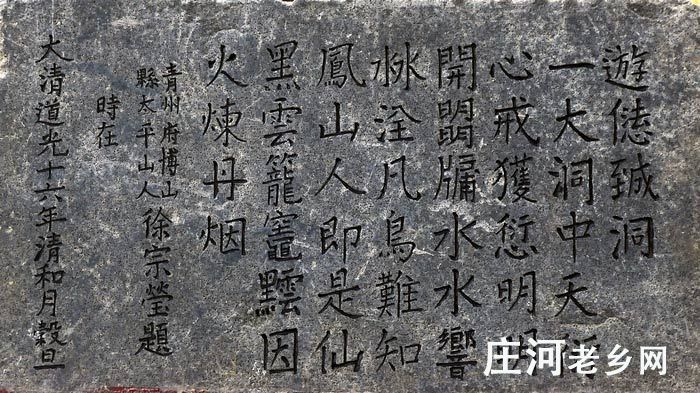 遊洞
一大洞中天
心戒獲愆明
開朙牖水水響
凡鳥難知
鳳山人即是仙
黑雲籠竈因
火煉丹烟
青州府博山
縣太平山人
徐宗瑩題
時在
大清道光十六年清和月穀旦
庄河老乡网